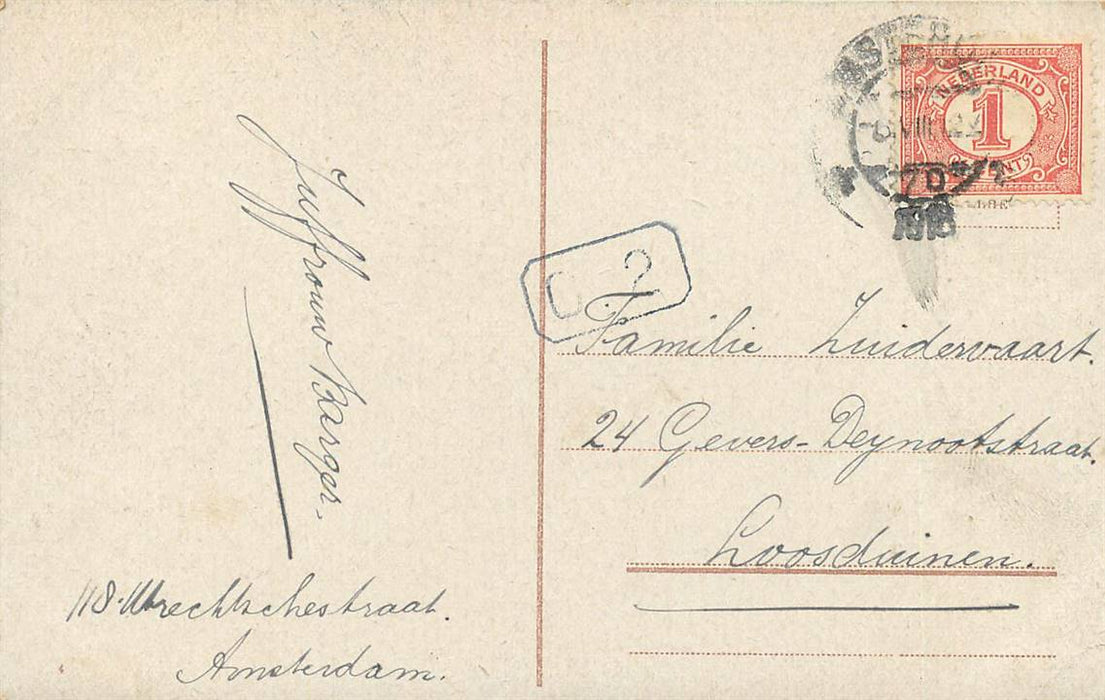 Juffrouw Barger.
118. Utrechtschestraat.
Amsterdam.
NEDERLAND
1
CENT
VIII
1918
2
Familie Zuidervaart.
24 Gevers-Deynootstraat.
Loosduinen.